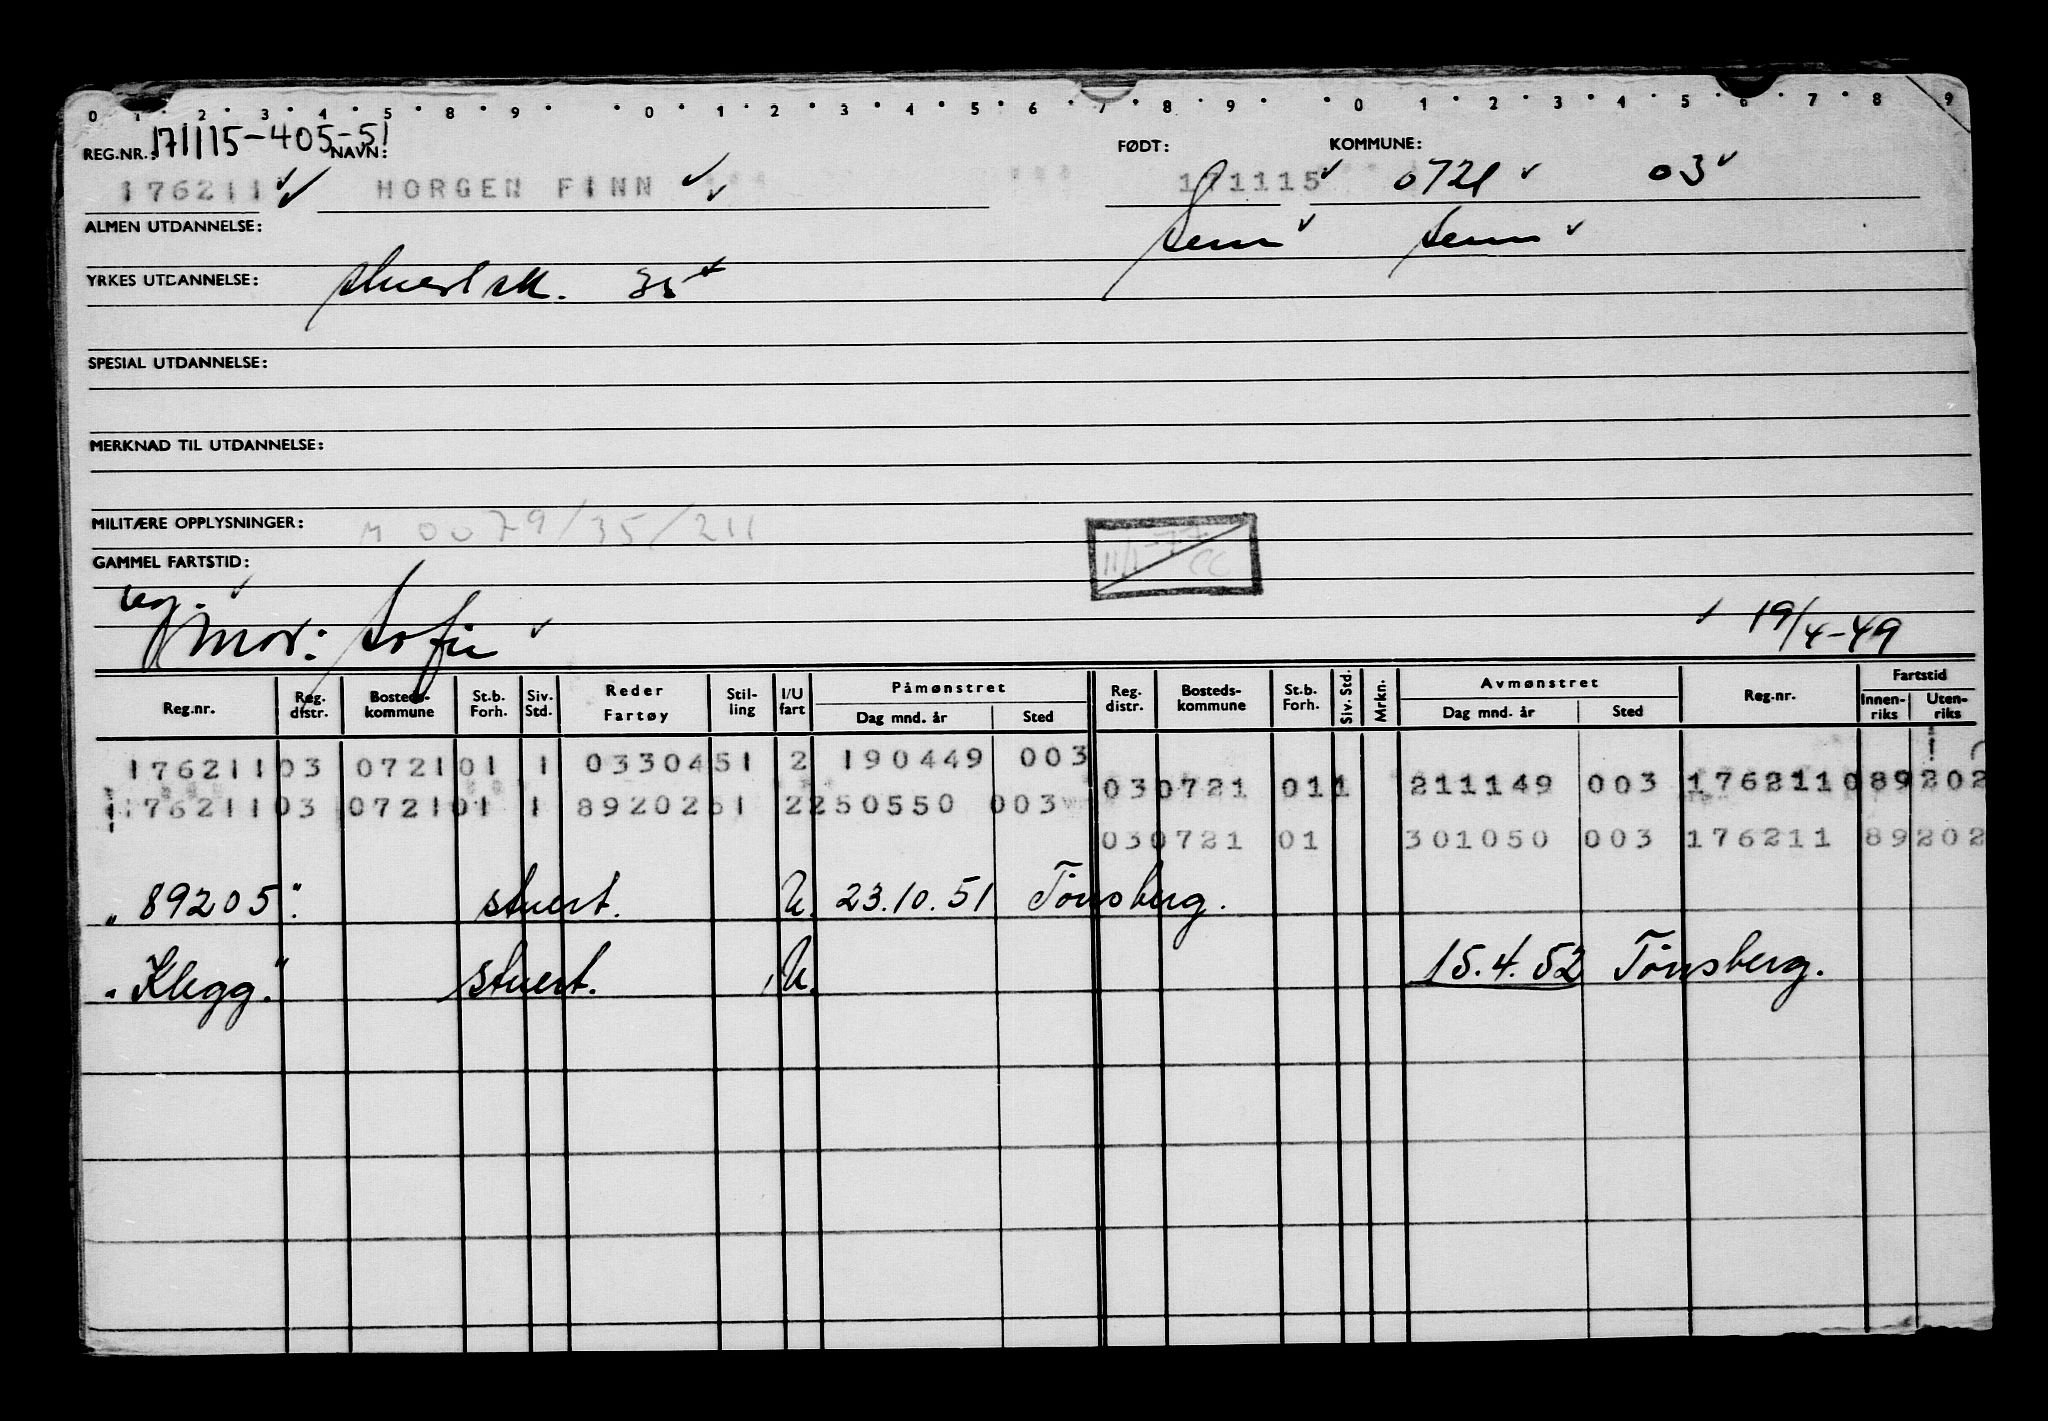 0 1 2 3 4 5 8 9 0 1 2 3 4 5 6 7 8 9 0 1 2 3 4 5 6 7 8 9
171115-405-51
REG.NR.: NAVN: FØDT: KOMMUNE:
176211 HORGEN FINN 171115 0721 03
ALMEN UTDANNELSE: Sem Sem
YRKES UTDANNELSE: stuertsk. 35
SPESIAL UTDANNELSE:
MERKNAD TIL UTDANNELSE:
MILITÆRE OPPLYSNINGER: M 0079/35/211
GAMMEL FARTSTID: 11/1-77 CC
reg.
Mor: Sofie 19/4-49
Reg.nr. Reg. distr. Bosteds-kommune St.b. Forh. Siv. Std. Reder Fartøy Stil-ling I/U fart Påmønstret Dag mnd. år Sted Reg. distr. Bosteds-kommune St.b. Forh. Siv. Std. Mrkn. Avmønstret Dag mnd. år Sted Reg.nr. Fartstid Innen-riks Uten-riks
176211 03 0721 01 1 0330451 2 190449 003
030721 011 211149 003 176211 089202
176211 03 0721 01 1 8920251 2 250550 003
030721 01 301050 003 176211 89202
"89205". stuert. U. 23.10.51 Tønsberg.
"Klegg." stuert. U. 15.4.52 Tønsberg.